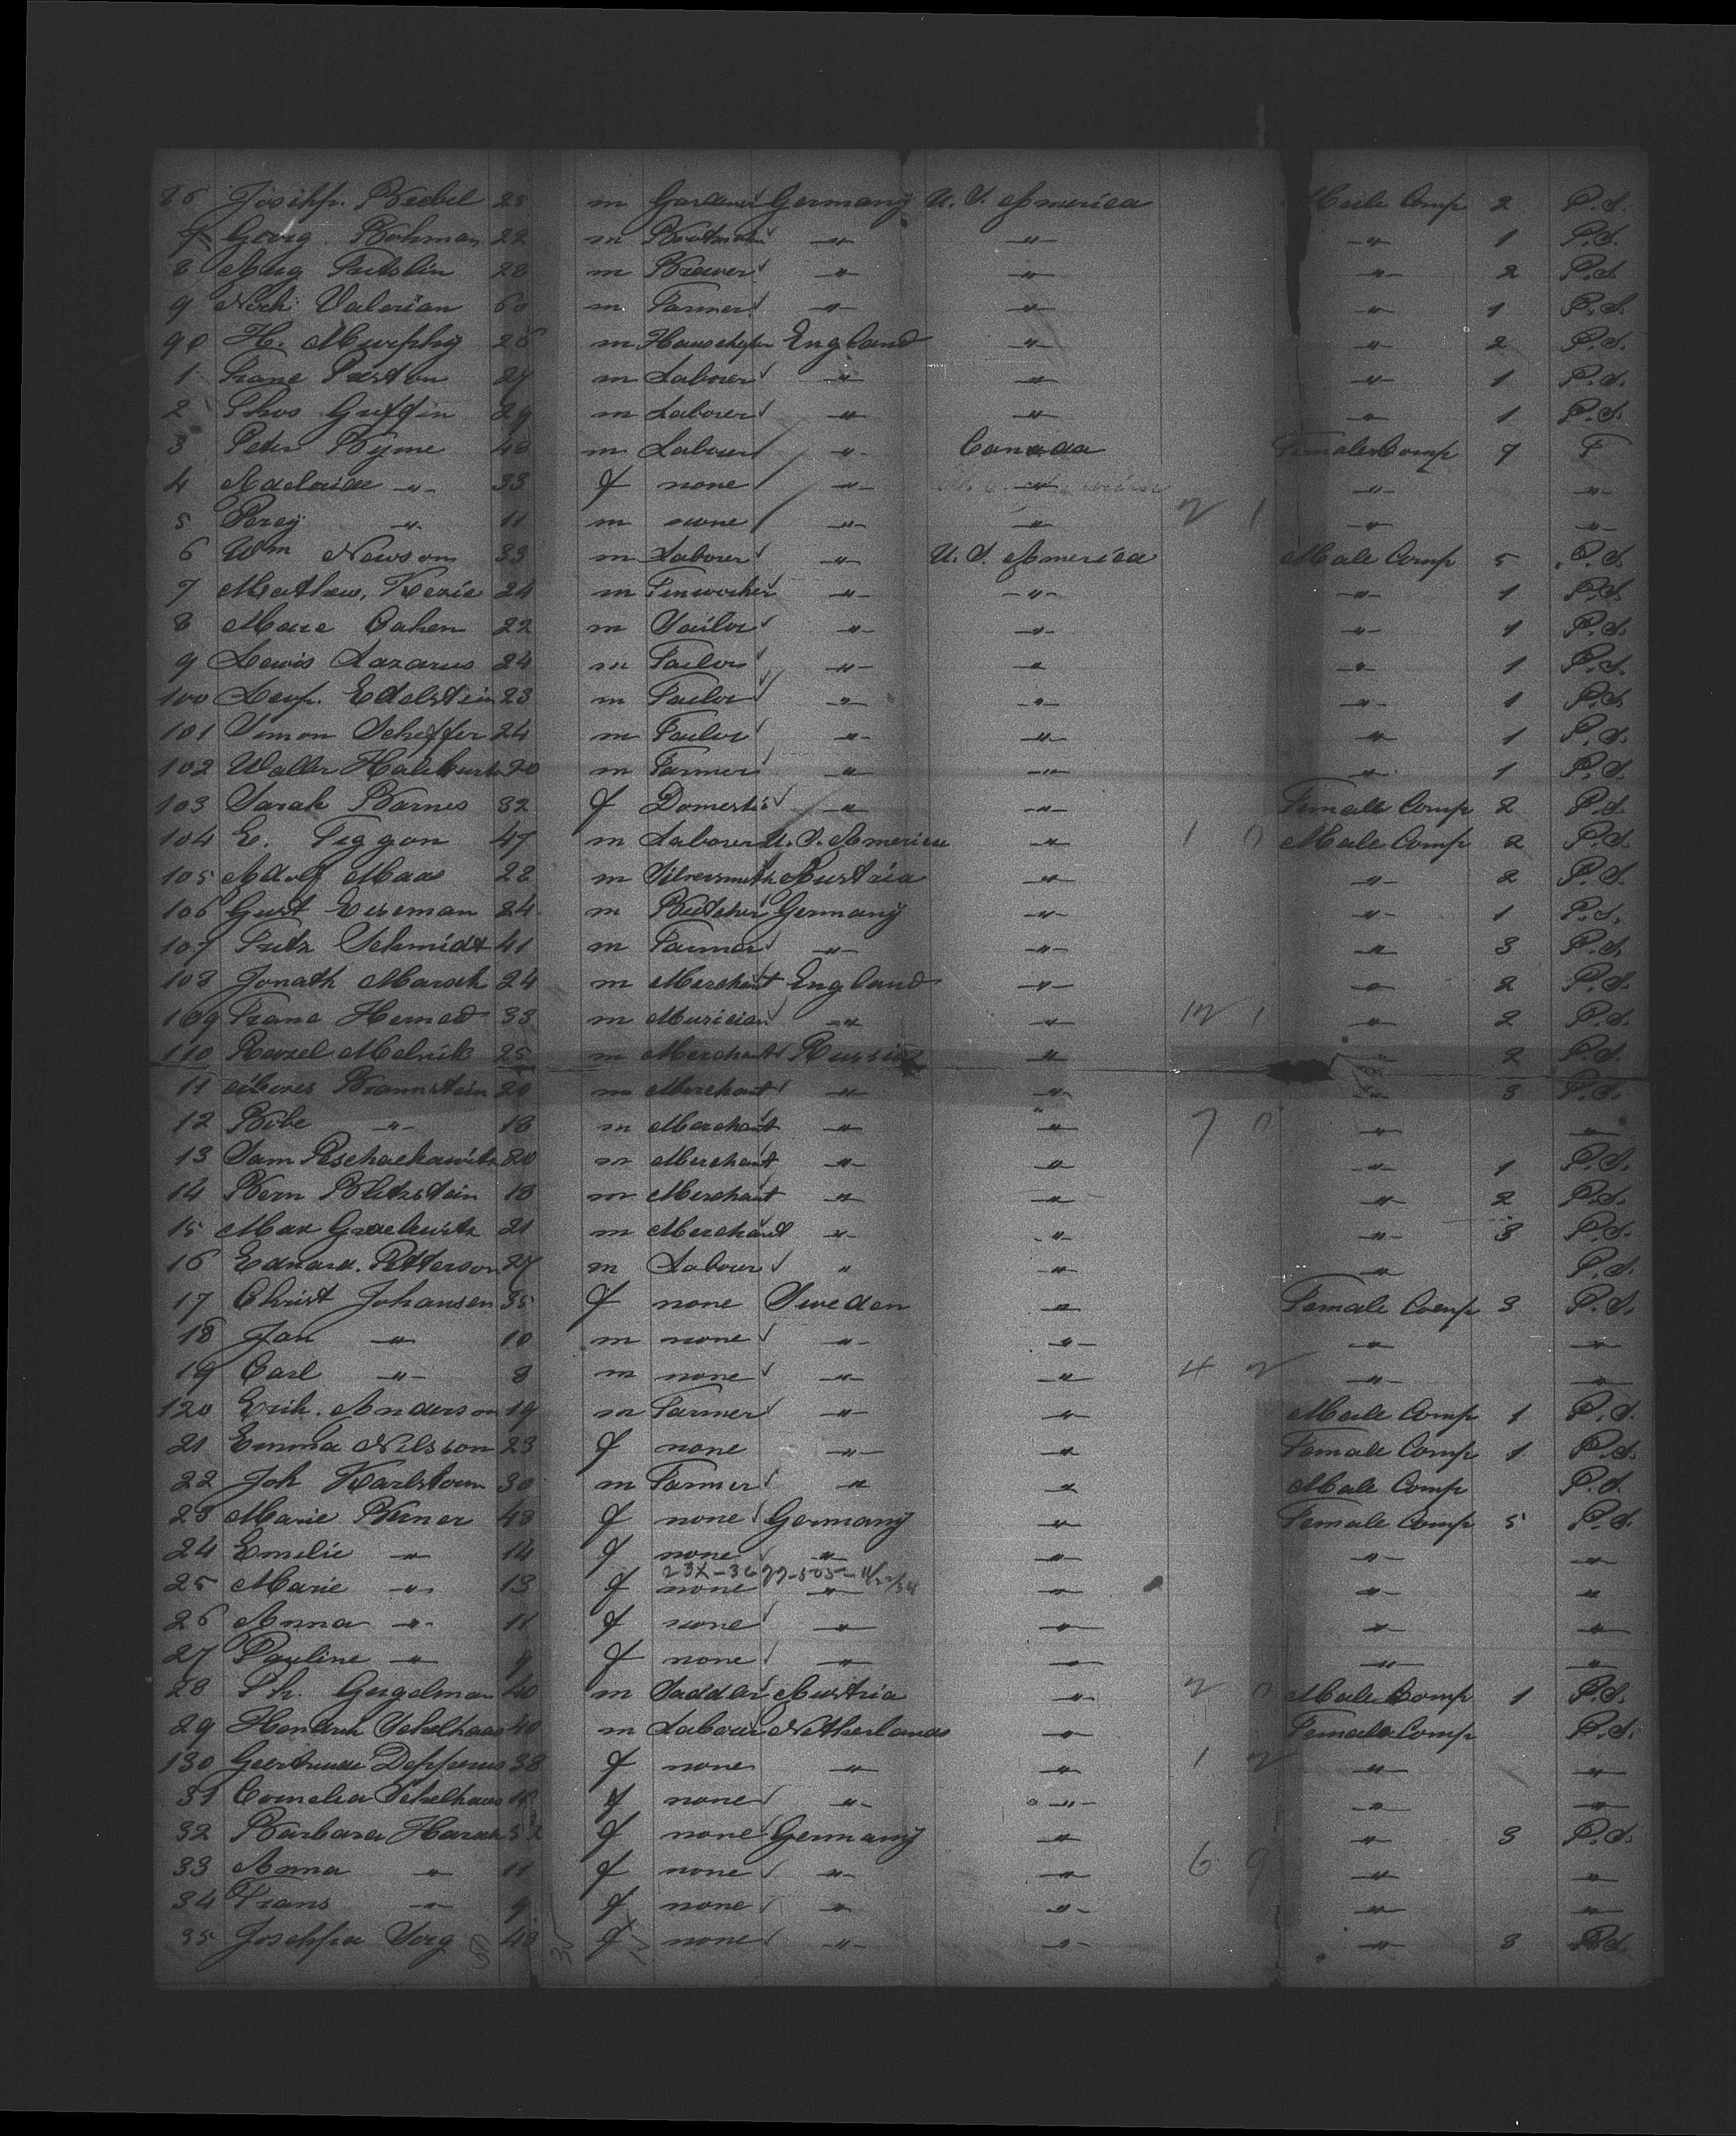 86 Joseph. Biebel 28 m Gardener Germany U. S. America Male Comp 2 P.S.
7 Georg. Bohman 22 m " " " 1 P.S.
8 Aug 28 m Brewer " " " 2 P.S.
9 Nick. Valerian 60 m Farmer " " " 1 P.S.
90 H. Murphy 26 m England " " 2 P.S.
1 Franc Preston 27 m Laborer " " " 1 P.S.
2 Thos Griffin 29 m Laborer " " " 1 P.S.
3 Peter Byrne 48 m Laborer " Canada Female Comp 7 F
4 Adelaide " 33 f none " " " "
5 Percy " 11 m none " " 2 1 " "
6 Wm Newsom 33 m Laborer " U. S. America Male Comp 5 P.S.
7 Mathew. Kezie 24 m Tinworker " " " 1 P.S.
8 Marc Cahen 22 m Tailor " " " 1 P.S.
9 Lewis Lazarus 24 m Tailor " " " 1 P.S.
100 Leop. Edelstein 23 m Tailor " " " 1 P.S.
101 Simon Scheffer 24 m Tailor " " " 1 P.S.
102 Walter 20 m Farmer " " " 1 P.S.
103 Sarah Barnes 32 f Domestic " " Female Comp 2 P.S.
104 E. Figgon 47 m Laborer U. S. America " 1 0 Male Comp 2 P.S.
105 Adolf Maas 22 m Silversmith Austria " " 2 P.S.
106 Gust Eiseman 24 m Butcher Germany " " 1 P.S.
107 Fritz Schmidt 41 m Farmer " " " 3 P.S.
108 Jonath Marsch 24 m Merchant England " " 2 P.S.
109 Franc Herned 33 m Musician " " 12 1 " 2 P.S.
110 Melnik 25 m Merchant Russia " " 2 P.S.
11 Braunstein 20 m Merchant " " " 3 P.S.
12 Bibe " 18 m Merchant " " 7 0 " "
13 Sam 20 m Merchant " " " 1 P.S.
14 Bern Bletzstein 18 m Merchant " " " 2 P.S.
15 Max 21 m Merchant " " " 3 P.S.
16 Eduard. Petterson 27 m Labour " " " P.S.
17 Christ Johansen 35 f none Sweden " Female Comp 3 P.S.
18 Jan " 10 m none " " " "
19 Carl " 8 m none " " 4 2 " "
120 Erik. Anderson 19 m Farmer " " Male Comp 1 P.S.
21 Emma Nilsson 23 f none " " Female Comp 1 P.S.
22 Joh Karlstom 30 m Farmer " " Male Comp P.S.
23 Marie Berner 43 f none Germany " Female Comp 5 P.S.
24 Emilie " 14 f none " " " "
25 Marie " 13 f none " " " "
26 Anna " 11 f none " " " "
27 Pauline " 9 f none " " " "
28 Ph. Gugelman 40 m Saddler Austria " 2 0 Male Comp 1 P.S.
29 Hendrik Schelhaas 40 m Labour Netherlands " Female Comp P.S.
130 Geertruda 38 f none " " 1 2 " "
31 Cornelia Schelhaas f none " " " "
32 Barbara Harak f none Germany " " 3 P.S.
33 Anna " 11 f none " " 6 9 " "
34 Frans " 9 f none " " " "
35 Josepha Sorg 43 f none " " " 3 P.S.